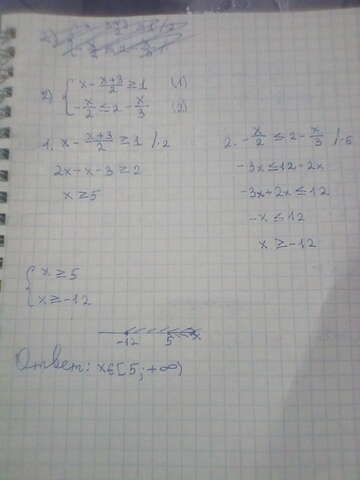 2) { x - (x+3)/2 ≥ 1 (1)
-x/2 ≤ 2 - x/3 (2)
1. x - (x+3)/2 ≥ 1 /·2
2x - x - 3 ≥ 2
x ≥ 5
2. -x/2 ≤ 2 - x/3 /·6
-3x ≤ 12 - 2x
-3x + 2x ≤ 12
-x ≤ 12
x ≥ -12
{ x ≥ 5
x ≥ -12
-12 5 x
Ответ: x∈[5; +∞)